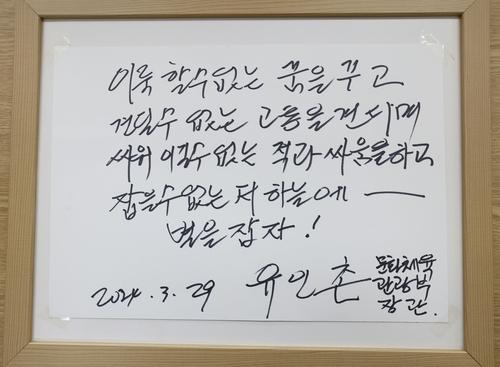 이룩 할수 없는 꿈을 꾸고
견딜수 없는 고통을 견디며
싸워 이길수 없는 적과 싸움을 하고
잡을수 없는 저 하늘에 —
별을 잡자!
2024.3.29 유인촌 문화체육
관광부
장관.